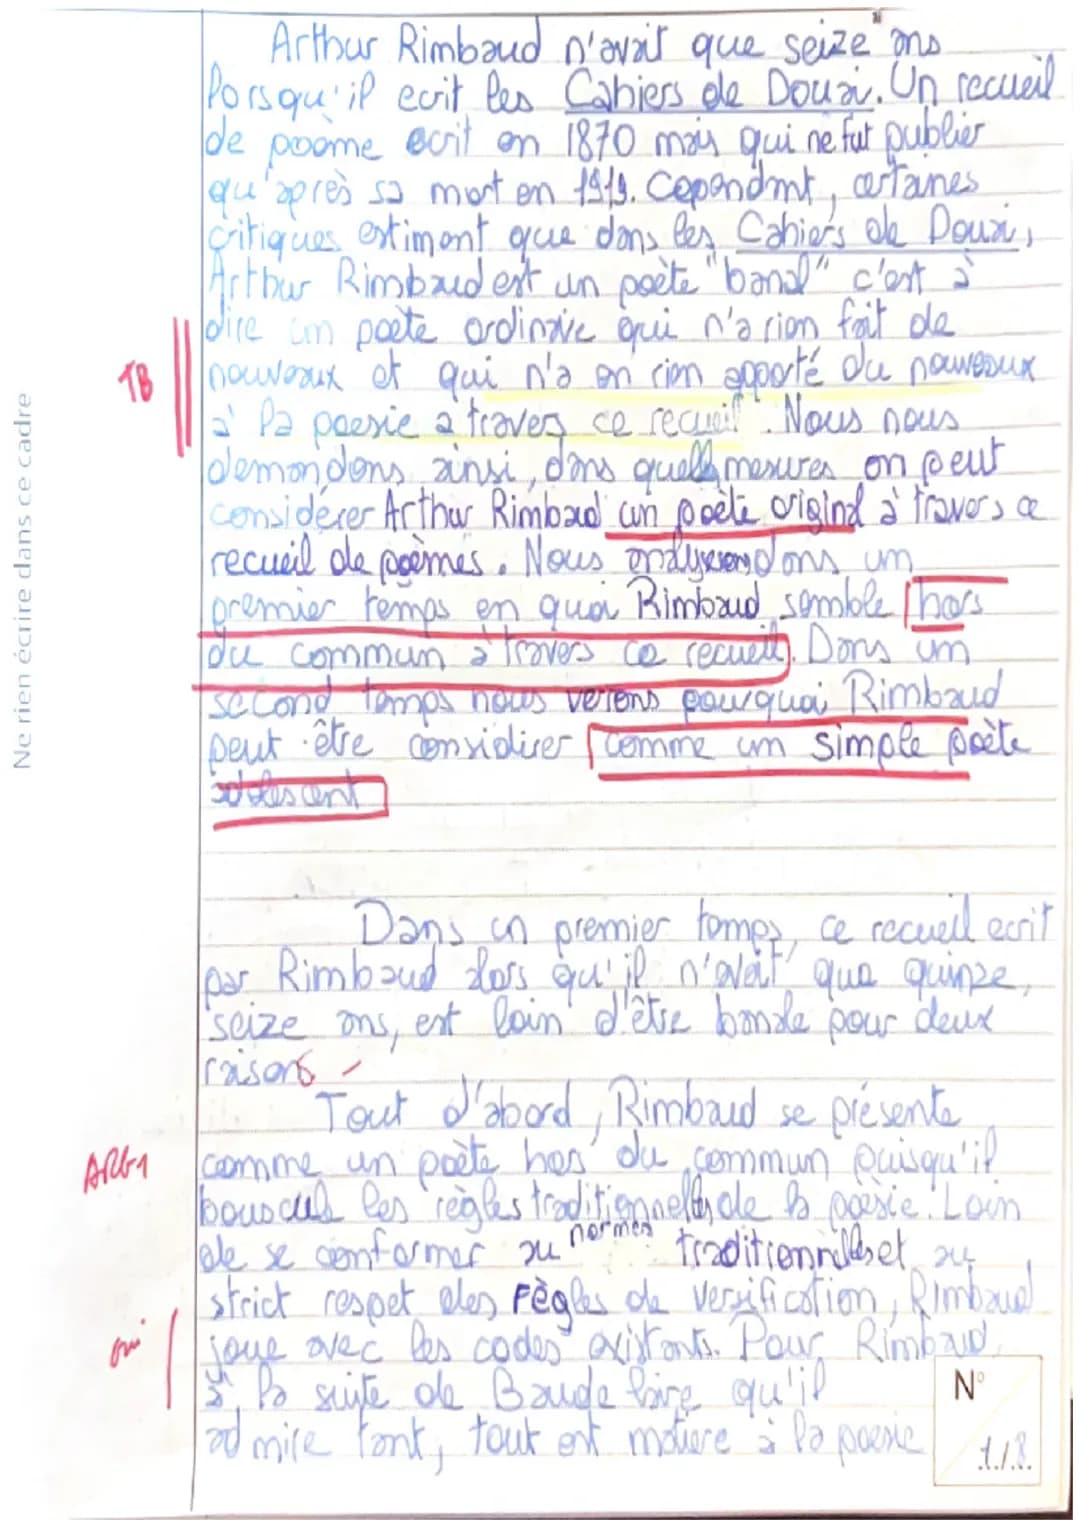 Arthur Rimbaud n'avait que seize ans
lorsqu'il ecrit les Cahiers de Douai. Un recueil
de poème ecrit en 1870 mais qui ne fut publier
qu'après sa mort en 1919. Cependant, certaines
critiques estiment que dans les Cahiers de Douai,
Arthur Rimbaud est un poète "banal" c'est à
dire un poète ordinaire qui n'a rien fait de
TB
nouveaux et qui n'a en rien apporté du nouveaux
à la poesie a travers ce recueil. Nous nous
demandons ainsi, dans quelles mesures on peut
considérer Arthur Rimbaud un poète original à travers ce
recueil de poèmes. Nous analyserons dans un
premier temps en quoi Rimbaud semble hors
du commun à travers ce recueil. Dans un
second temps nous verrons pourquoi Rimbaud
peut être considirer comme un simple poète
adolescent
Dans un premier temps, ce recueil ecrit
par Rimbaud alors qu'il n'avait que quinze,
seize ans, est loin d'être banale pour deux
raisons
Tout d'abord, Rimbaud se présente
ARG1
comme un poète hors du commun puisqu'il
bouscule les règles traditionnelles de la poésie. Loin
de se conformer au normes traditionnilles et au
strict respet des règles de versification, Rimbaud
oui
joue avec les codes existants. Pour Rimbaud,
à la suite de Baudelaire qu'il
admire tant, tout est matière à la poesie
N°
1/8
Ne rien écrire dans ce cadre